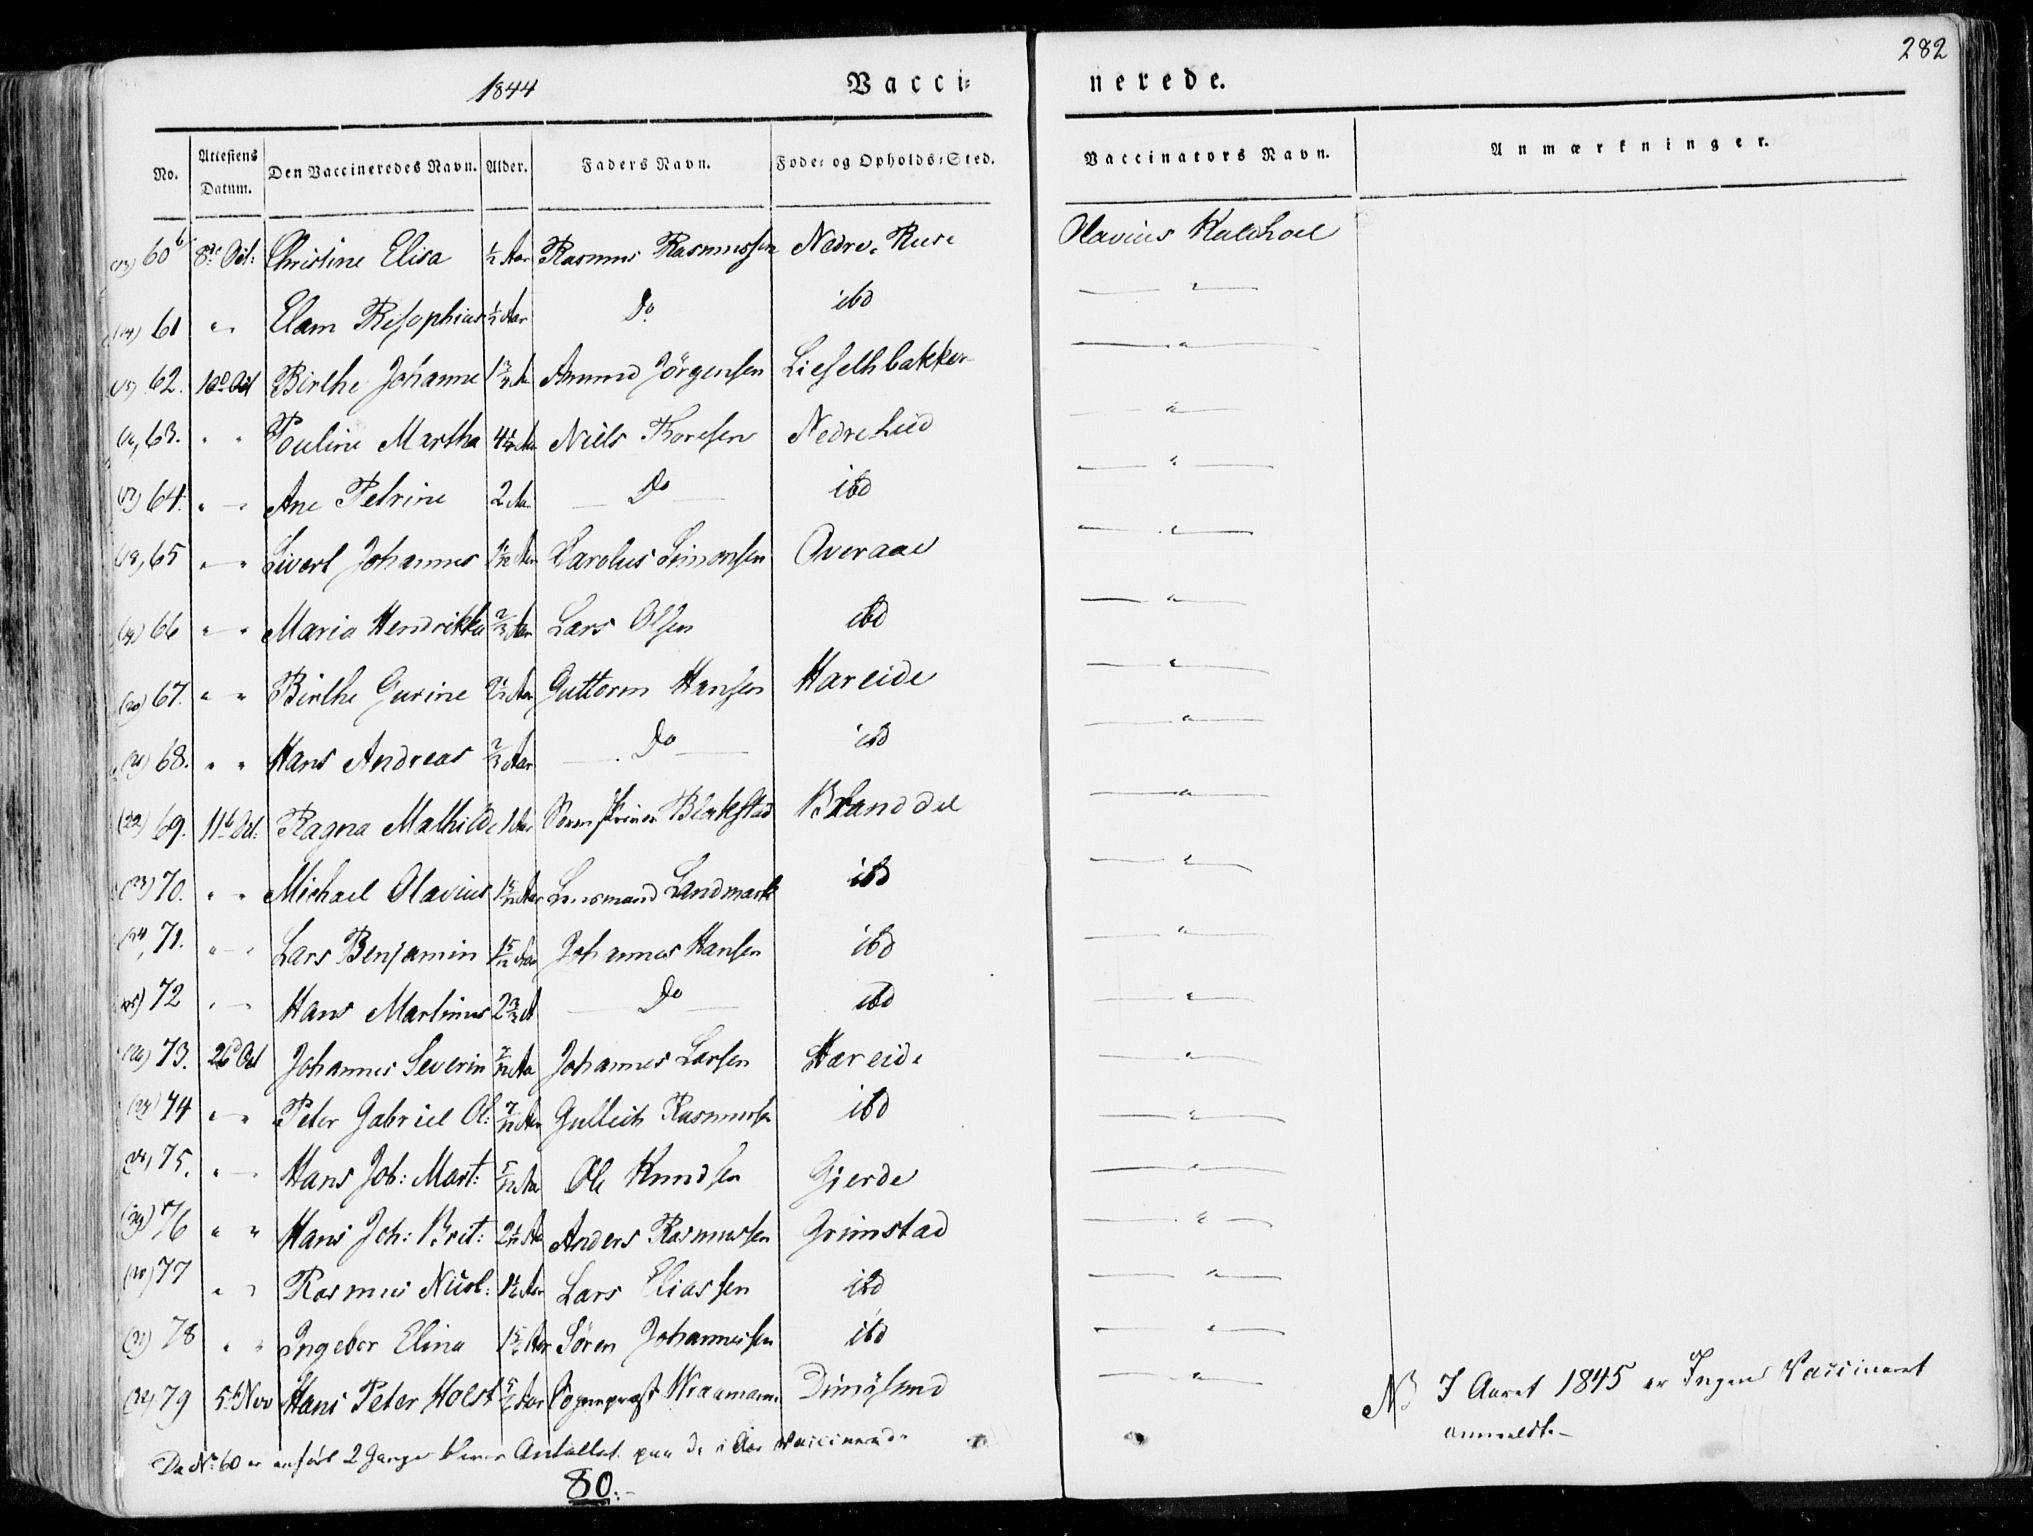 282
1844 Vacci= nerede.
No. Attestens Datum. Den Vaccineredes Navn. Alder. Faders Navn. Føde= og Opholds=Sted. Vaccinators Navn. Anmærkninger.
(13) 60b 8de Oct: Christine Elisa ½ Aar Rasmus Rasmussen Nedre Ruse Olavius Kaldhoel
(14) 61 " " Elam ½ Aar Do ibd — " —
(15) 62. 10d Oct Birthe Johanne Amund Jörgensen — " —
(16) 63. " " Pouline Martha 4½ Aar Niels Thoresen Nedre Lied — " —
(17) 64. " — Ane Petrine 2 Aar Do ibd — " —
(18) 65 " — " Sivert Johannes Carolus Simonsen Overaae — " —
(19) 66 " — " Maria Hendrikke ⅔ Aar Lars Olsen ibd — " —
(20) 67. " " Birthe Gurine Guttorm Hansen Hareide — " —
(21) 68. " " Hans Andreas ⅔ Aar Do ibd — " —
(22) 69. 11te Oct: Ragna Mathilde 1 Aar Blakstad Branddal — " —
(23) 70. " " Michael Olavius 1 5/12 Aar Lensmand Landmark ibd — " —
(24) 71. " — " Lars Benjamin 1 5/12 Aar Johannes Hansen ibd — " —
(25) 72 " — Hans Martinus Do ibd — " —
(26) 73. 26d Oct Johannes Severin 7/12 Aar Johannes Larsen Hareide — " —
(27) 74 " — " Peter Gabriel Ol: 7/12 Aar Gulleik Rasmussen ibd — " —
(28) 75. " — Hans Joh: Mart: 5/12 Aar Ole Knudsen Gjerde — " —
(29) 76 " " Hans Joh: Brit: Anders Rasmussen Grimstad — " —
(30) 77 " " Rasmus Nicol: Lars Eliassen ibd — " —
(31) 78 " " Ingebor Elina Søren Johannessen ibd — " —
(32) 79 5te Nov Hans Peter Holst Sogneprest Wraamann Dimösund — " —
NB I Aaret 1845 er Ingen Vaccineret
anmeldt. —
Da No 60 er anført 2 Gange bliver Antallet paa de i Aar Vaccinerede
80. —